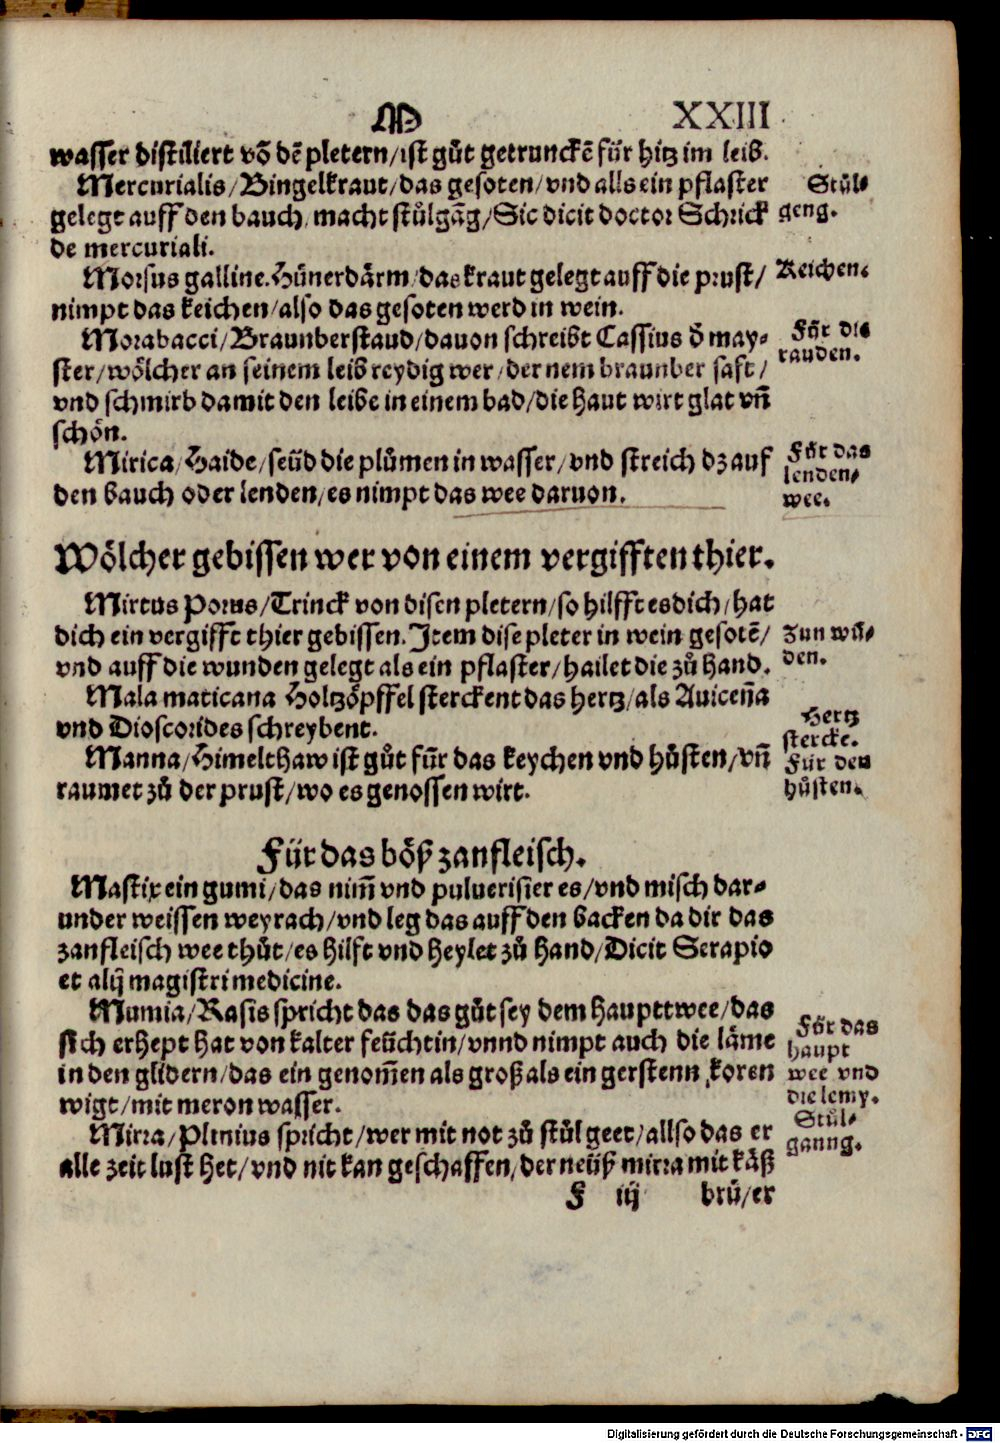 M XXIII
wasser distilliert vō dē pletern/ist gůt getrunckē für hitz im leib.
Mercurialis/Bingelkraut/das gesoten/vnd alls ein pflaster
gelegt auff den bauch/macht stůlgāg/Sic dicit doctor Schrick
de mercuriali.
Stůl-
geng.
Morsus galline.Hünerdärm/das kraut gelegt auff die prust/
nimpt das keichen/also das gesoten werd in wein.
Keichen.
Morabacci/Braunberstaud/dauon schreibt Cassius d̄ may-
ster/wölcher an seinem leib reydig wer/der nem braunber saft/
vnd schmirb damit den leibe in einem bad/die haut wirt glat vn̄
schön.
Für die
rauden.
Mirica/Haide/seüd die plůmen in wasser/vnd streich dz auf
den bauch oder lenden/es nimpt das wee daruon.
Für das
lenden/
wee.
Wölcher gebissen wer von einem vergifften thier.
Mirtus Porus/Trinck von disen pletern/so hilfft es dich/hat
dich ein vergifft thier gebissen.Item dise pleter in wein gesotē/
vnd auff die wunden gelegt als ein pflaster/hailet die zů hand.
Zun wū-
den.
Mala maticana Holtzöpffel sterckent das hertz/als Auicen̄a
vnd Dioscorides schreybent.
Hertz
stercke.
Manna/Himelthaw ist gůt für das keychen vnd hůsten/vn̄
raumet zů der prust/wo es genossen wirt.
Für den
hůsten.
Für das böß zanfleisch.
Mastix ein gumi/das nim̄ vnd puluerisier es/vnd misch dar-
under weissen weyrach/vnd leg das auff den backen da dir das
zanfleisch wee thůt/es hilft vnd heylet zů hand/Dicit Serapio
et alij magistri medicine.
Mumia/Rasis spricht das das gůt sey dem haupttwee/das
sich erhept hat von kalter feüchtin/vnnd nimpt auch die läme
in den glidern/das ein genom̄en als groß als ein gerstenn koren
wigt/mit meron wasser.
Für das
haupt
wee vnd
die lemy.
Mirra/Plinius spricht/wer mit not zů stůl geet/allso das er
alle zeit lust het/vnd nit kan geschaffen/der neüß mirra mit käß
Stůl-
ganng.
F iij brü/er
Digitalisierung gefördert durch die Deutsche Forschungsgemeinschaft - DFG